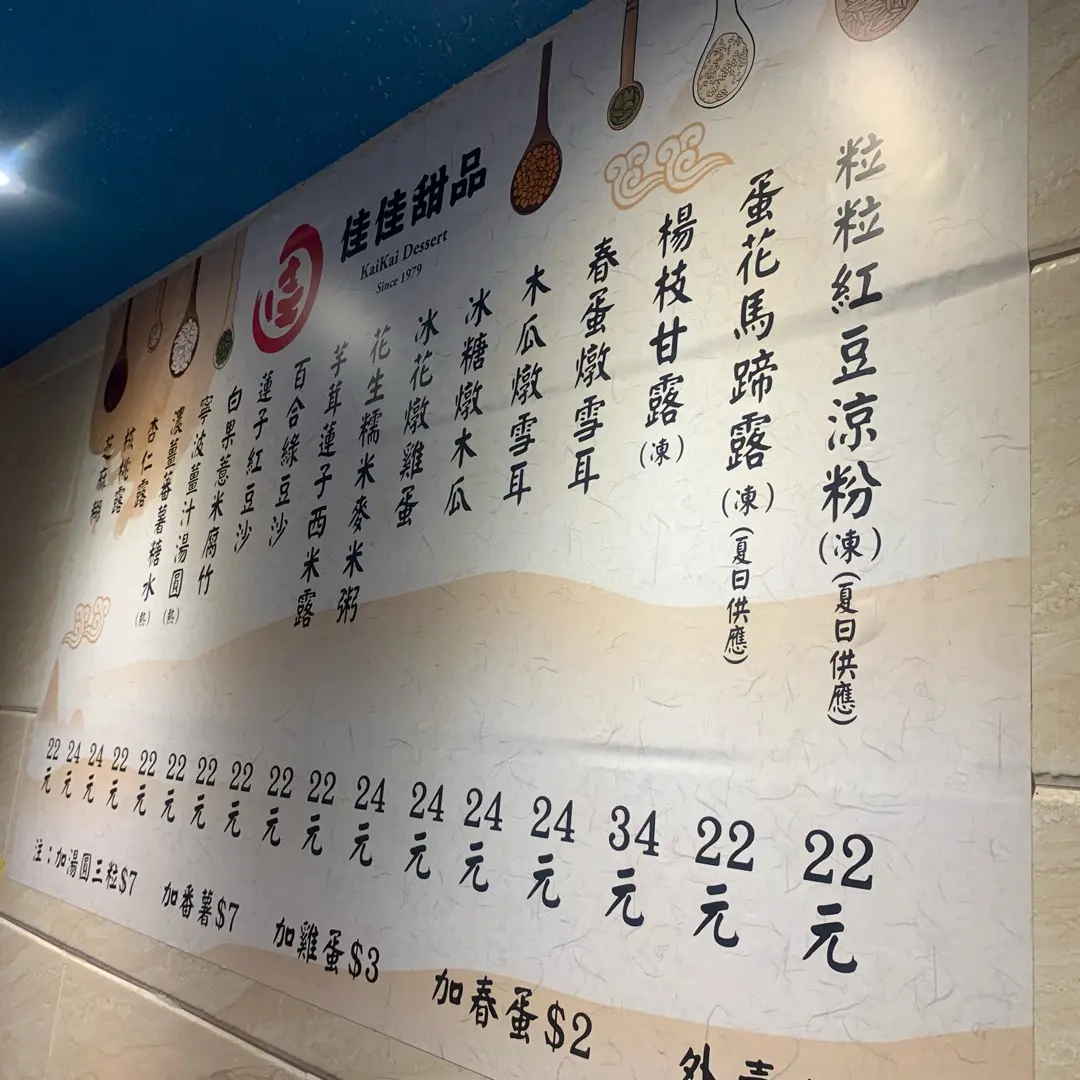 佳佳甜品
KaiKai Dessert
Since 1979
粒粒紅豆涼粉(凍)(夏日供應) 22元
蛋花馬蹄露(凍)(夏日供應) 22元
楊枝甘露(凍) 34元
春蛋燉雪耳 24元
木瓜燉雪耳 24元
冰糖燉木瓜 24元
冰花燉雞蛋 24元
花生糯米麥米粥 22元
芋茸蓮子西米露 22元
百合綠豆沙 22元
蓮子紅豆沙 22元
白果薏米腐竹 22元
寧波薑汁湯圓(熱) 22元
濃薑蕃薯糖水(熱) 22元
杏仁露 24元
核桃露 24元
芝麻糊 22元
注：加湯圓三粒$7 加番薯$7 加雞蛋$3 加春蛋$2 外賣